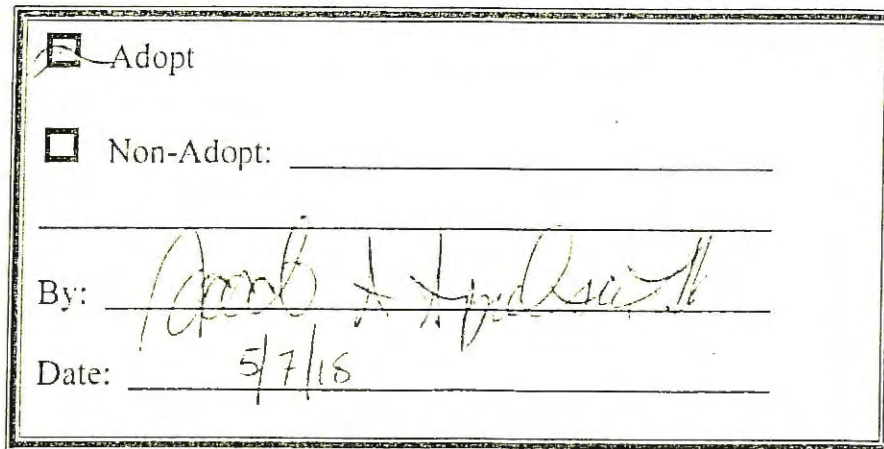 Adopt
Non-Adopt:
By:
Date: 5/7/18